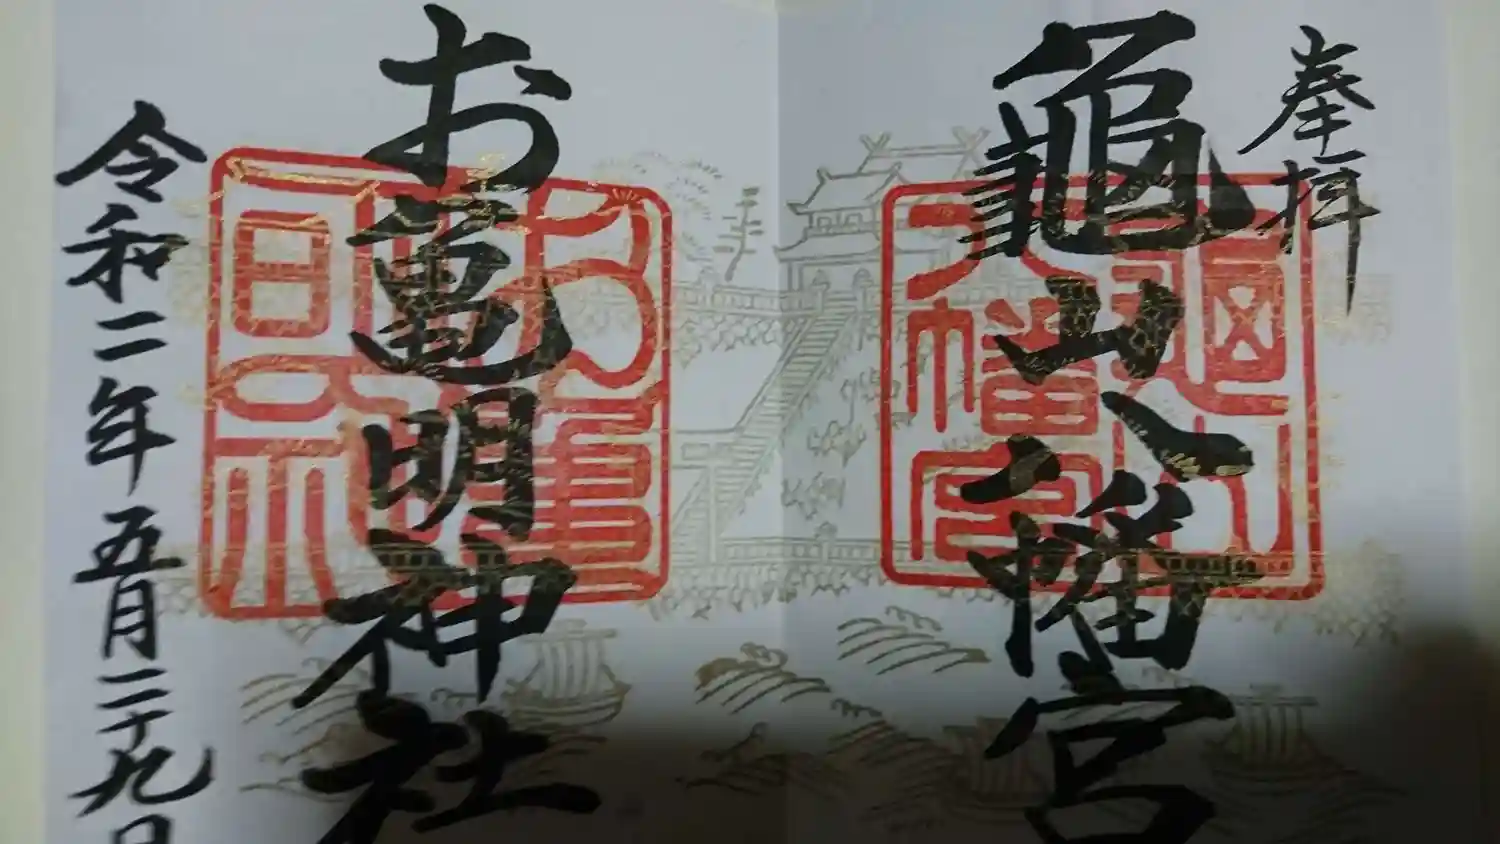 奉拝
龜山八幡宮
龜山
八幡宮
お亀明神社
お亀
明神社
令和二年五月二十九日